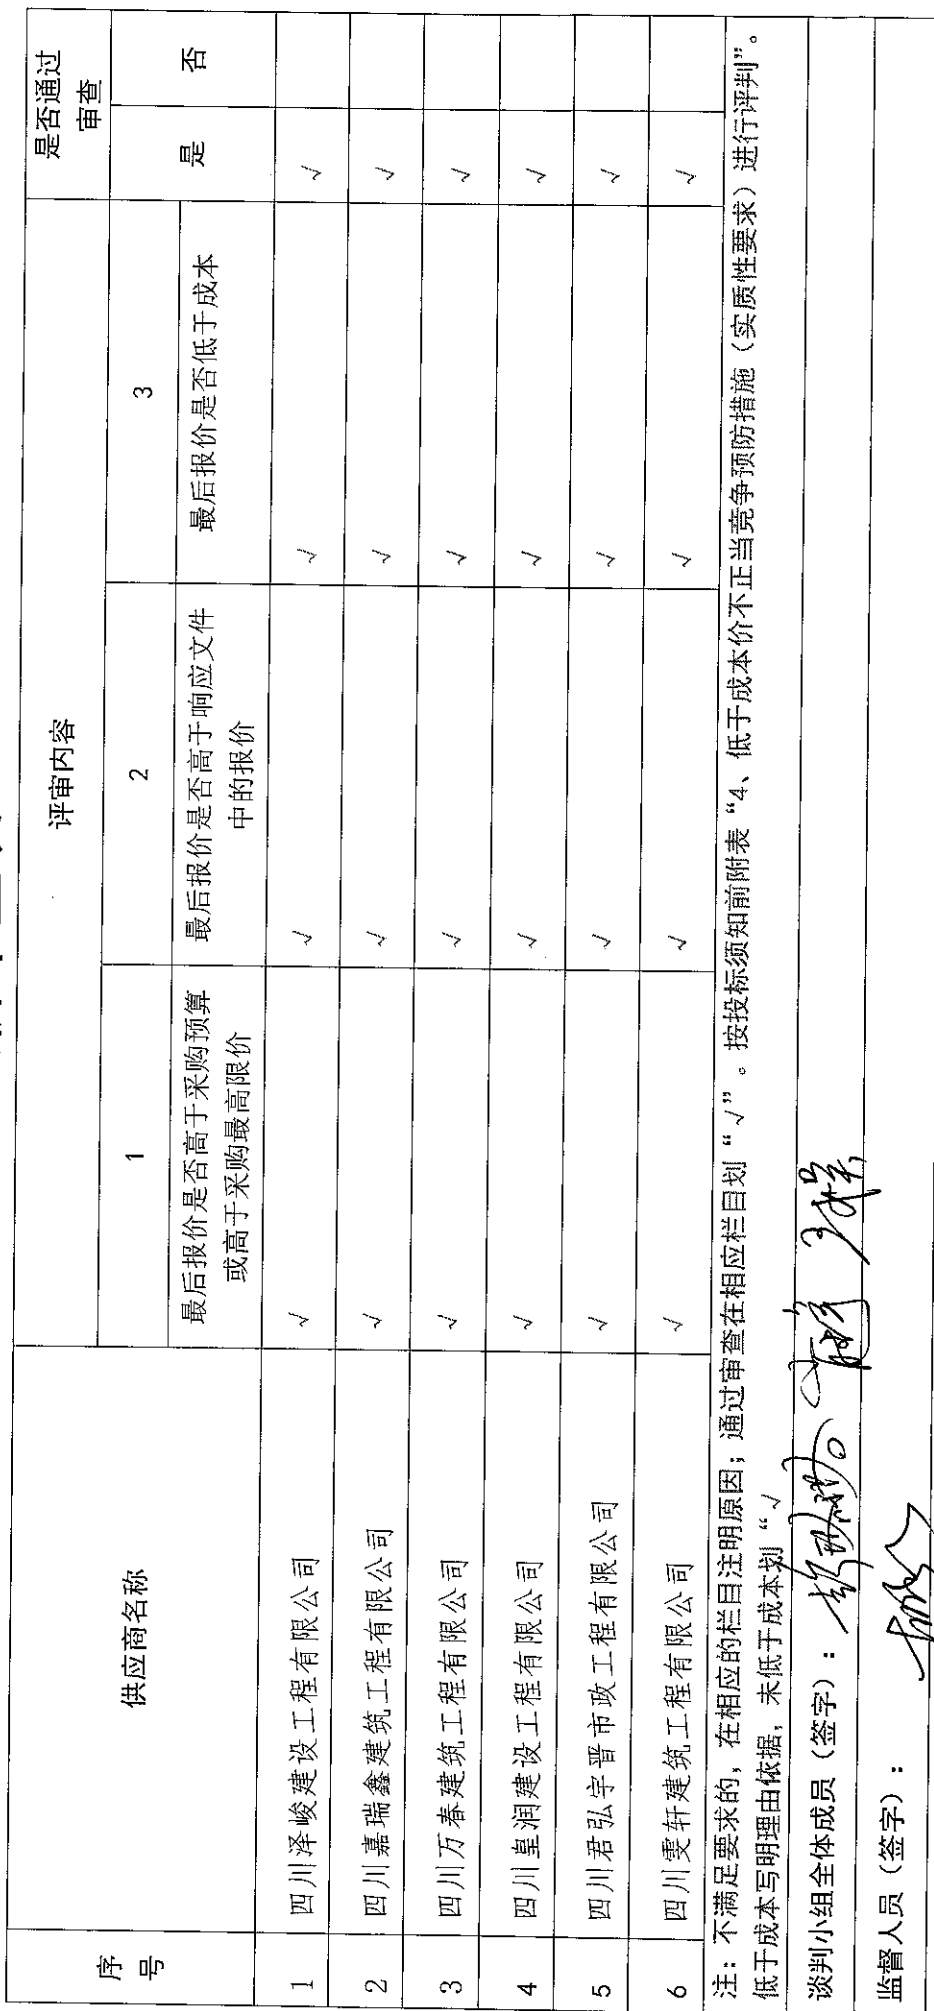 序号 供应商名称 评审内容 是否通过审查
1 2 3 是 否
最后报价是否高于采购预算或高于采购最高限价 最后报价是否高于响应文件中的报价 最后报价是否低于成本
1 四川泽峻建设工程有限公司 √ √ √ √
2 四川嘉瑞鑫建筑工程有限公司 √ √ √ √
3 四川万春建筑工程有限公司 √ √ √ √
4 四川皇润建设工程有限公司 √ √ √ √
5 四川君弘宇晋市政工程有限公司 √ √ √ √
6 四川雯轩建筑工程有限公司 √ √ √ √
注：不满足要求的，在相应的栏目注明原因；通过审查在相应栏目划“√”。按投标须知前附表“4、低于成本价不正当竞争预防措施（实质性要求）进行评判”。
低于成本写明理由依据，未低于成本划“√
谈判小组全体成员（签字）：
监督人员（签字）：